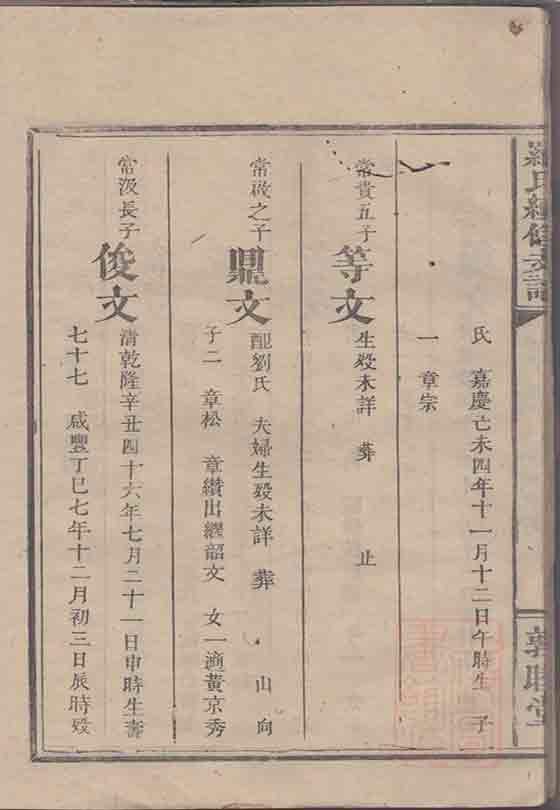 羅氏續修支譜
敦睦堂
氏　嘉慶亡未四年十一月十二日午時生　子
一　章宗
常貴五子
等文
生歿未詳　葬　止
常啟之子
鼎文
配劉氏　夫婦生歿未詳　葬　山　向
子二　章松　章纘出繼韶文　女一適黃京秀
常汲長子
俊文
清乾隆辛丑四十六年七月二十一日申時生壽
七十七　咸豐丁巳七年十二月初三日辰時歿